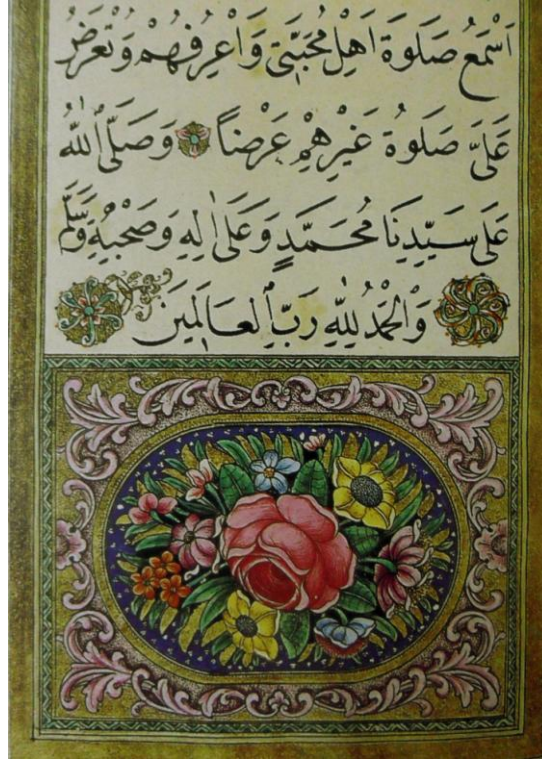 اَسْمَعُ صَلٰوةَ اَهْلِ مَحَبَّتٖى وَاَعْرِفُهُمْ وَتُعْرَضُ
عَلَىَّ صَلٰوةُ غَيْرِهِمْ عَرْضًا وَصَلَّى اللّٰهُ
عَلٰى سَيِّدِنَا مُحَمَّدٍ وَعَلٰى اٰلِهٖ وَصَحْبِهٖ وَسَلَّمَ
وَالْحَمْدُ لِلّٰهِ رَبِّ الْعَالَمٖينَ